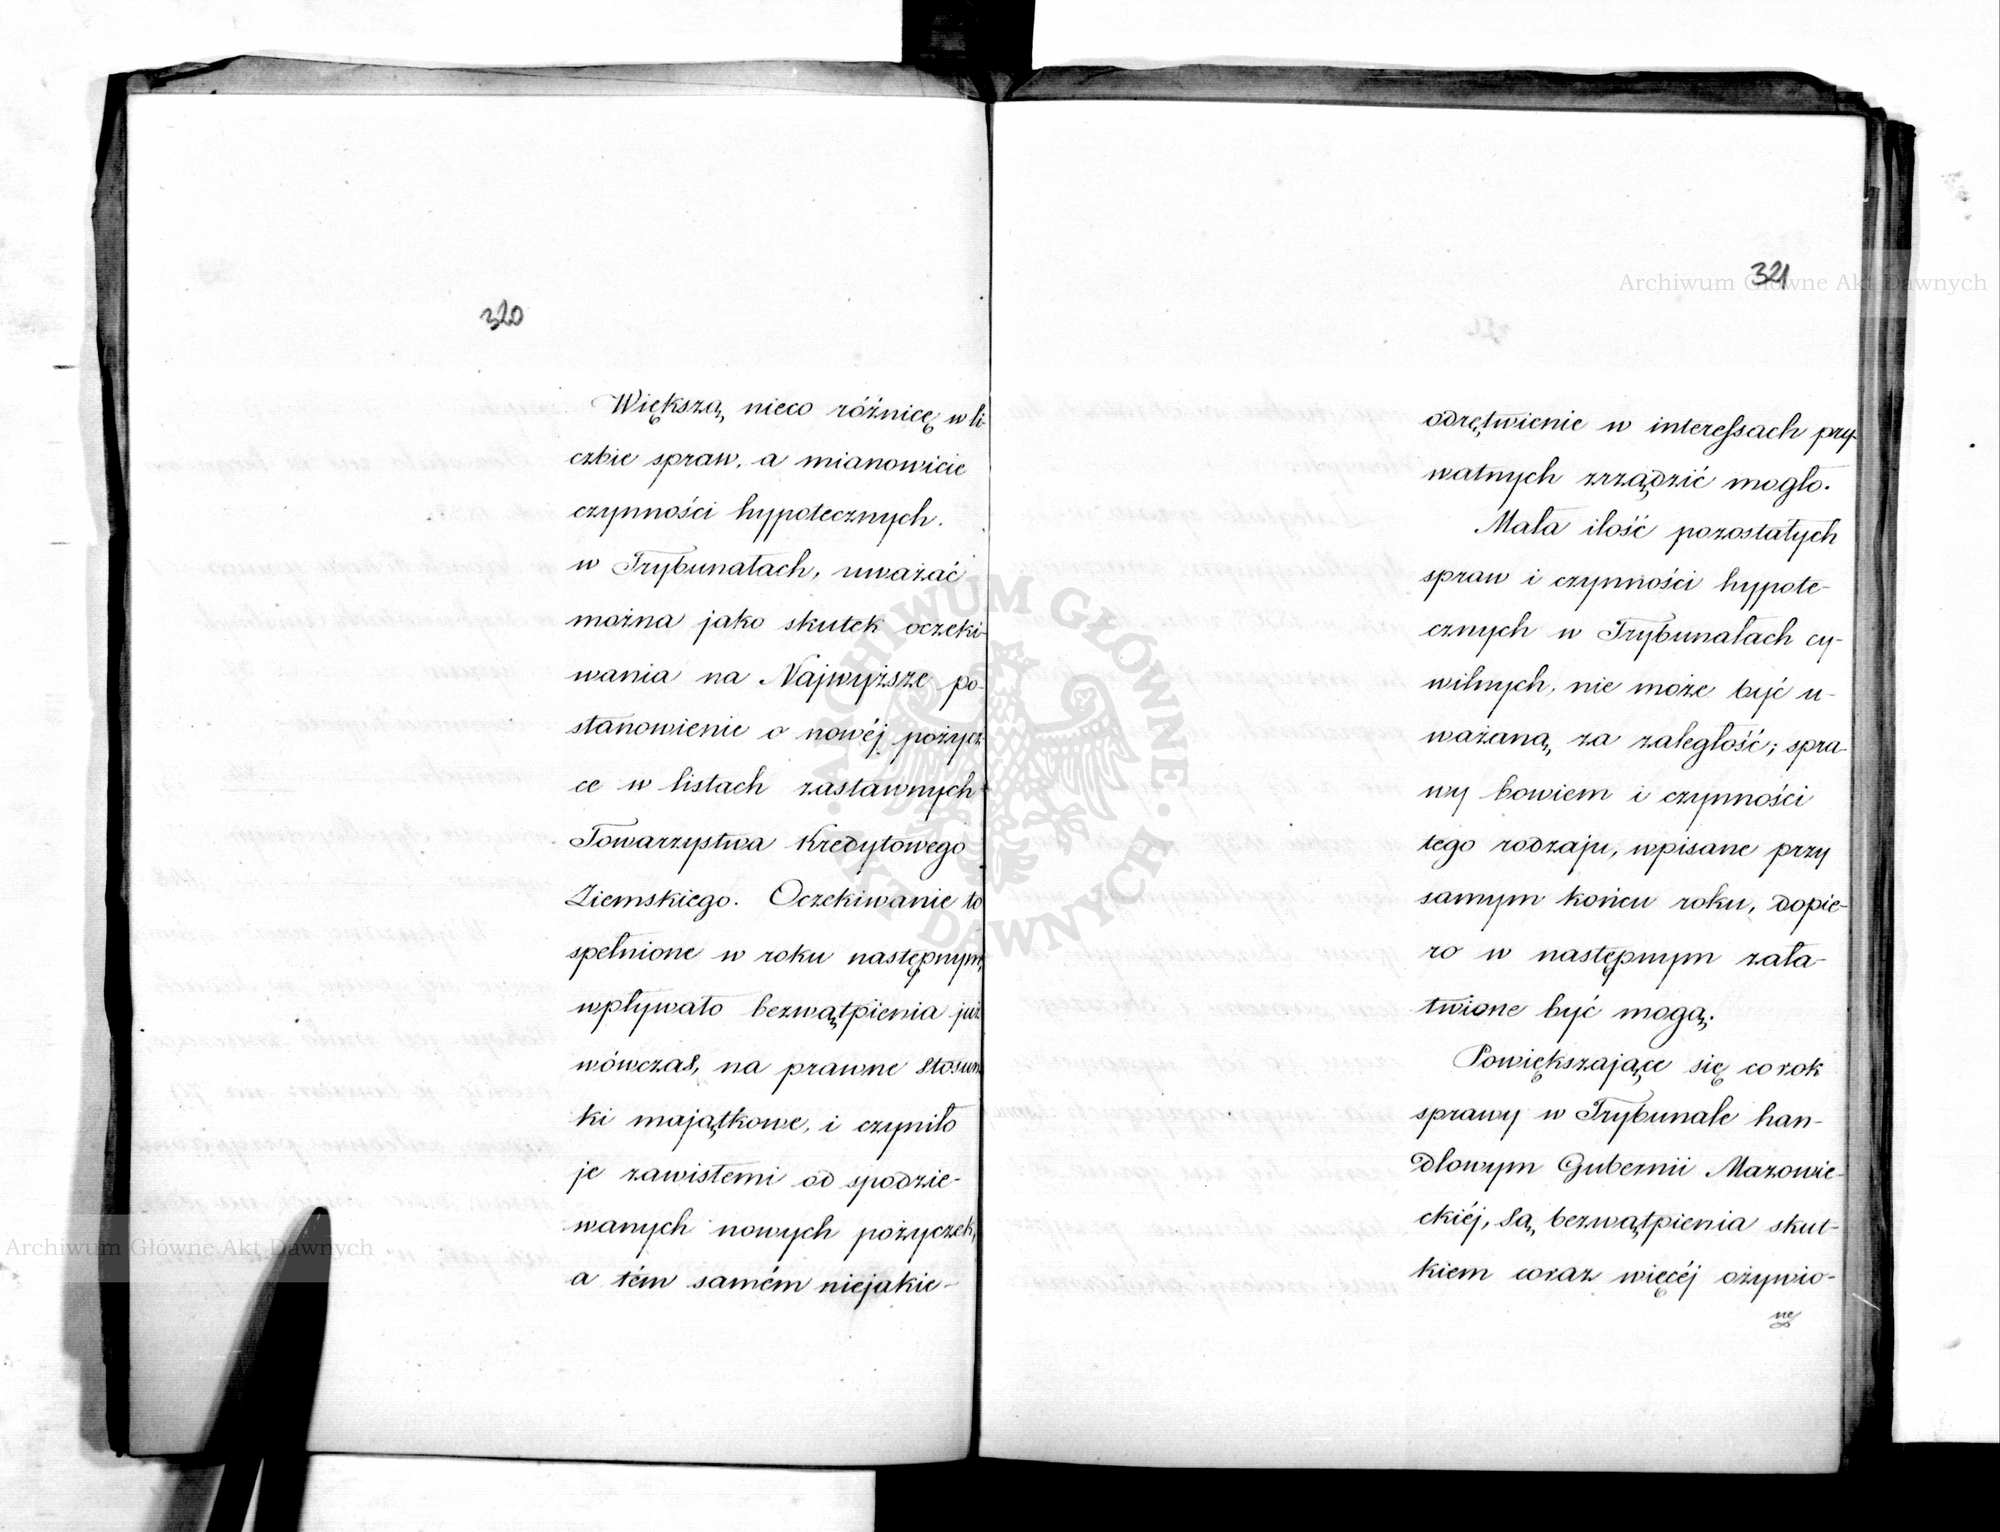 320
Większą nieco różnicę w li-
czbie spraw, a mianowicie
czynności hypotecznych.
w Trybunałach, uważać
można jako skutek oczeki-
wania na Najwyższe po-
stanowienie o nowéj pożycz-
ce w listach zastawnych
Towarzystwa Kredytowego
Ziemskiego. Oczekiwanie to
spełnione w roku następnym,
wpływało bezwątpienia już
wówczas, na prawne stosun
ki majątkowe, i czyniło
je zawisłemi od spodzie-
wanych nowych pożyczek,
a tém samém niejakie-
321
odrętwienie w interessach pry-
watnych zrządzić mogło.
Mała ilość pozostałych
spraw i czynności hypote-
cznych w Trybunałach cy-
wilnych, nie może być u-
ważaną za zaległość; spra-
wy bowiem i czynności
tego rodzaju, wpisane przy
samym końcu roku, dopie-
ro w następnym zała-
twione być mogą.
Powiększające się co rok
sprawy w Trybunale han-
dlowym Gubernii Mazowie-
ckiéj, są bezwątpienia skut-
kiem coraz więcéj ożywio-
ne
Archiwum Główne Akt Dawnych
Archiwum Główne Akt Dawnych
ARCHIWUM GŁÓWNE · AKT DAWNYCH ·